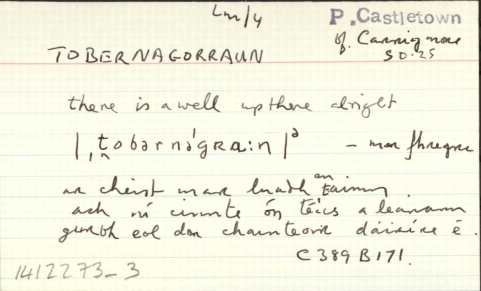 Lm/4
P. Castletown
of. Carrignavar
SD. 25
TOBERNAGORRAUN
there is a well up there alright
|ˌtobərnəˈgʀɑːn|ə – mar fhreagra
ar cheist mar luadh an t-ainm.
ach ní cinnte ón téics a leanann
gurbh eol don chainteoir dáiríre é.
C 389 B171.
1412273_3